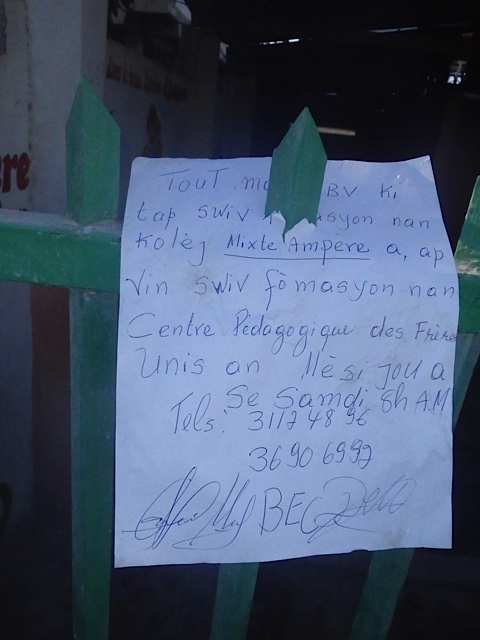 Tout BV ki
tap swiv nan
Kolèj Mixte Ampère a, ap
Vin swiv fòmasyon nan
Centre Pédagogique des Frères
Unis an Mèsi jou a
Se Samdi 8h A.M
Tels. 3117 48 96
36 90 69 92
BEC